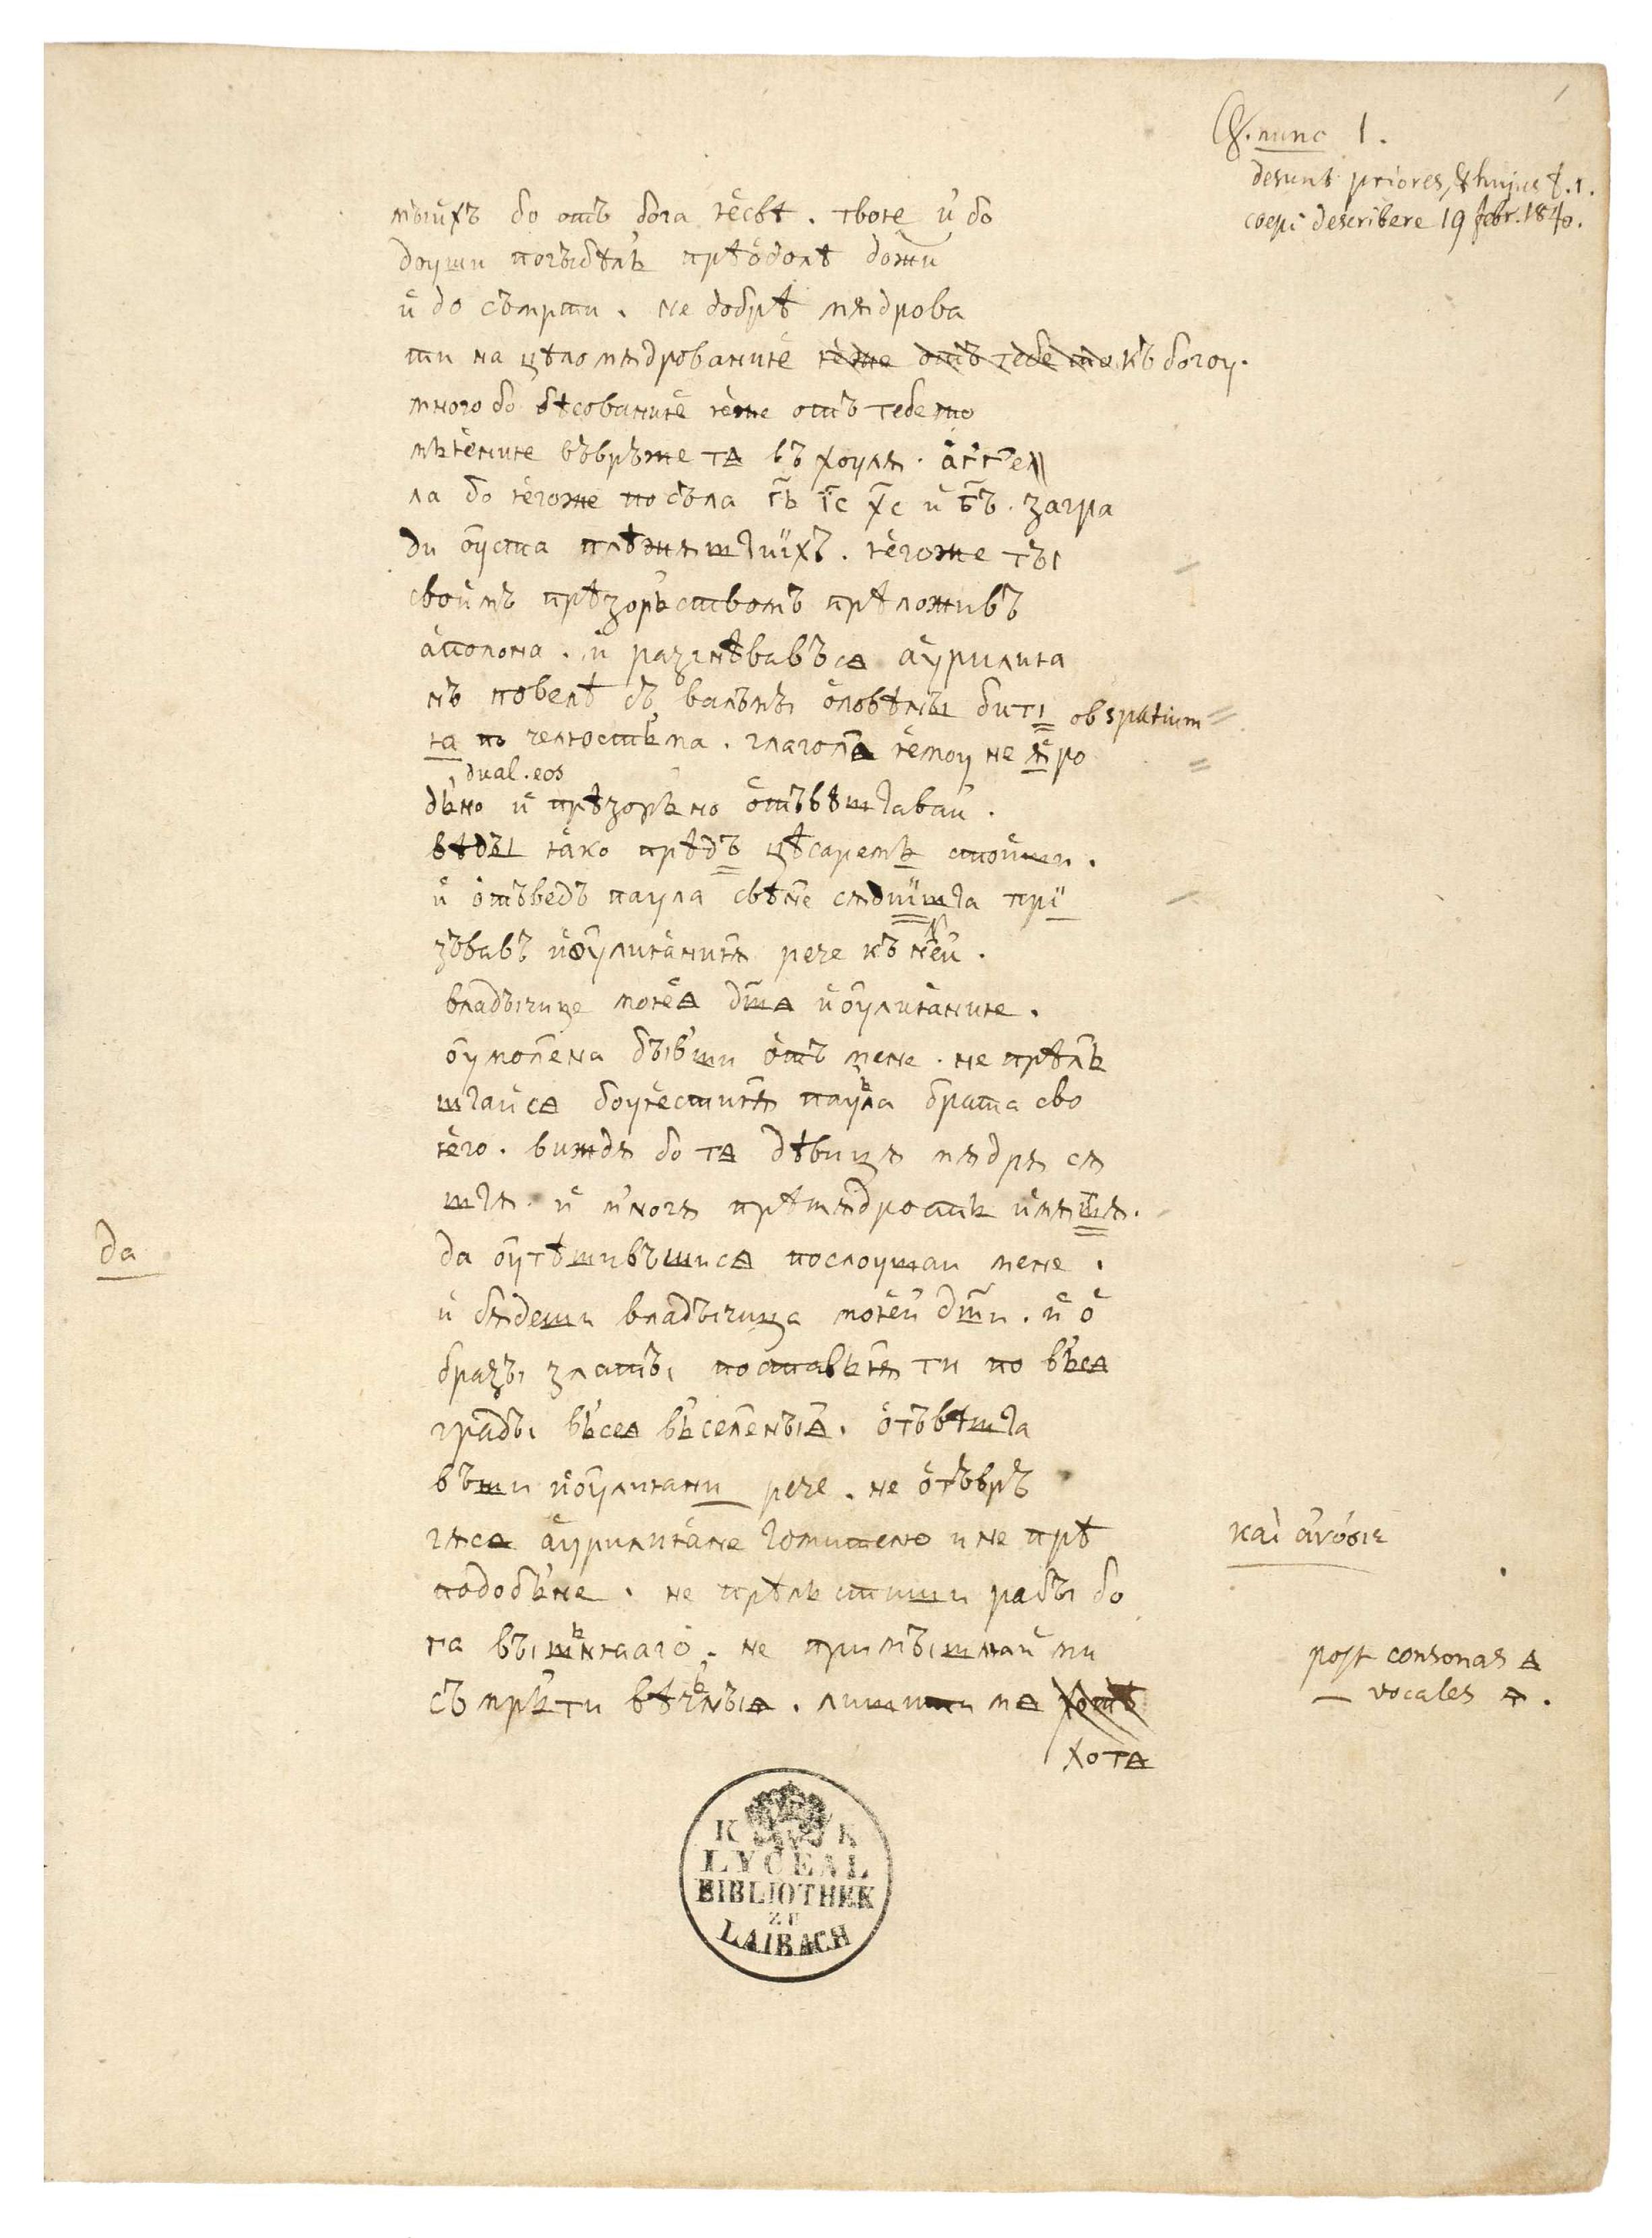 Q. nunc 1.
desunt priores, & hujus f. 1.
coepi describere 19 febr. 1840.
мꙑихъ бо отъ бога ѥсвѣ . твоѥ и до
доуши погꙑбѣль прѣодолѣ дожи
и до съмрти . не добрѣ мѫдрова
ти на цѣломѫдрованиѥ ѥже отъ тебе то къ богоу .
много бо бѣсованиѥ ѥже отъ тебе то
мьѥниѥ въврьже тѧ въ хоулѫ . а҄г҄г҄е
ла бо ѥгоже посъла г҃ь і҃с х҃с и б҃ъ . загра
ди оуста плѣжѫштиихъ . ѥгоже тꙑ
своимъ прѣзорьствомъ прѣложивъ
аполона . и разгнѣвавъ сѧ аурилиꙗ
нъ повелѣ съ вальмꙑ оловѣнꙑ бити ob spatium
ꙗ по челюстьма . глаголѧ ѥмоу не ѭро
dual. eos
дьно и прѣзорьно отъвѣштаваи .
вѣдꙑ ꙗко прѣдъ цѣсаремь стоиши .
и отъведъ паула свѣне сѫдиишта при
зъвавъ иоулиꙗниѭ рече къ н҄еи .
владꙑчице моѥѧ д҃шѧ иоулиꙗниѥ .
оумолена бꙑвъши отъ мене . не прѣль
штаи сѧ боуѥстиѭ паула брата сво
ѥго . виждѫ бо тѧ дѣвицѫ мѫдрѫ сѫ
штѫ . и многѫ прѣмѫдрость имѫштѫ .
да
да оутѣшивъши сѧ послоушаи мене .
и бѫдеши владꙑчица моѥи д҃ши . и о
бразꙑ златꙑ поставьѭ ти по вьсѧ
градꙑ вьсеѧ вьселенꙑѧ . отъвѣшта
въши иоулиꙗни рече . не отъврь
гѫ сѧ аурилиꙗне томителю и не прѣ
καὶ ἀνόσιε
подобьне . не прѣльстиши рабꙑ бо
га вꙑшьнꙗаго . не примꙑшлꙗи ми
съмрьти вѣчьнꙑѧ . лишити мѧ
хотѧ
post consonas ѧ
— vocales ѧ .
K K
LYCEAL
BIBLIOTHEK
ZU
LAIBACH